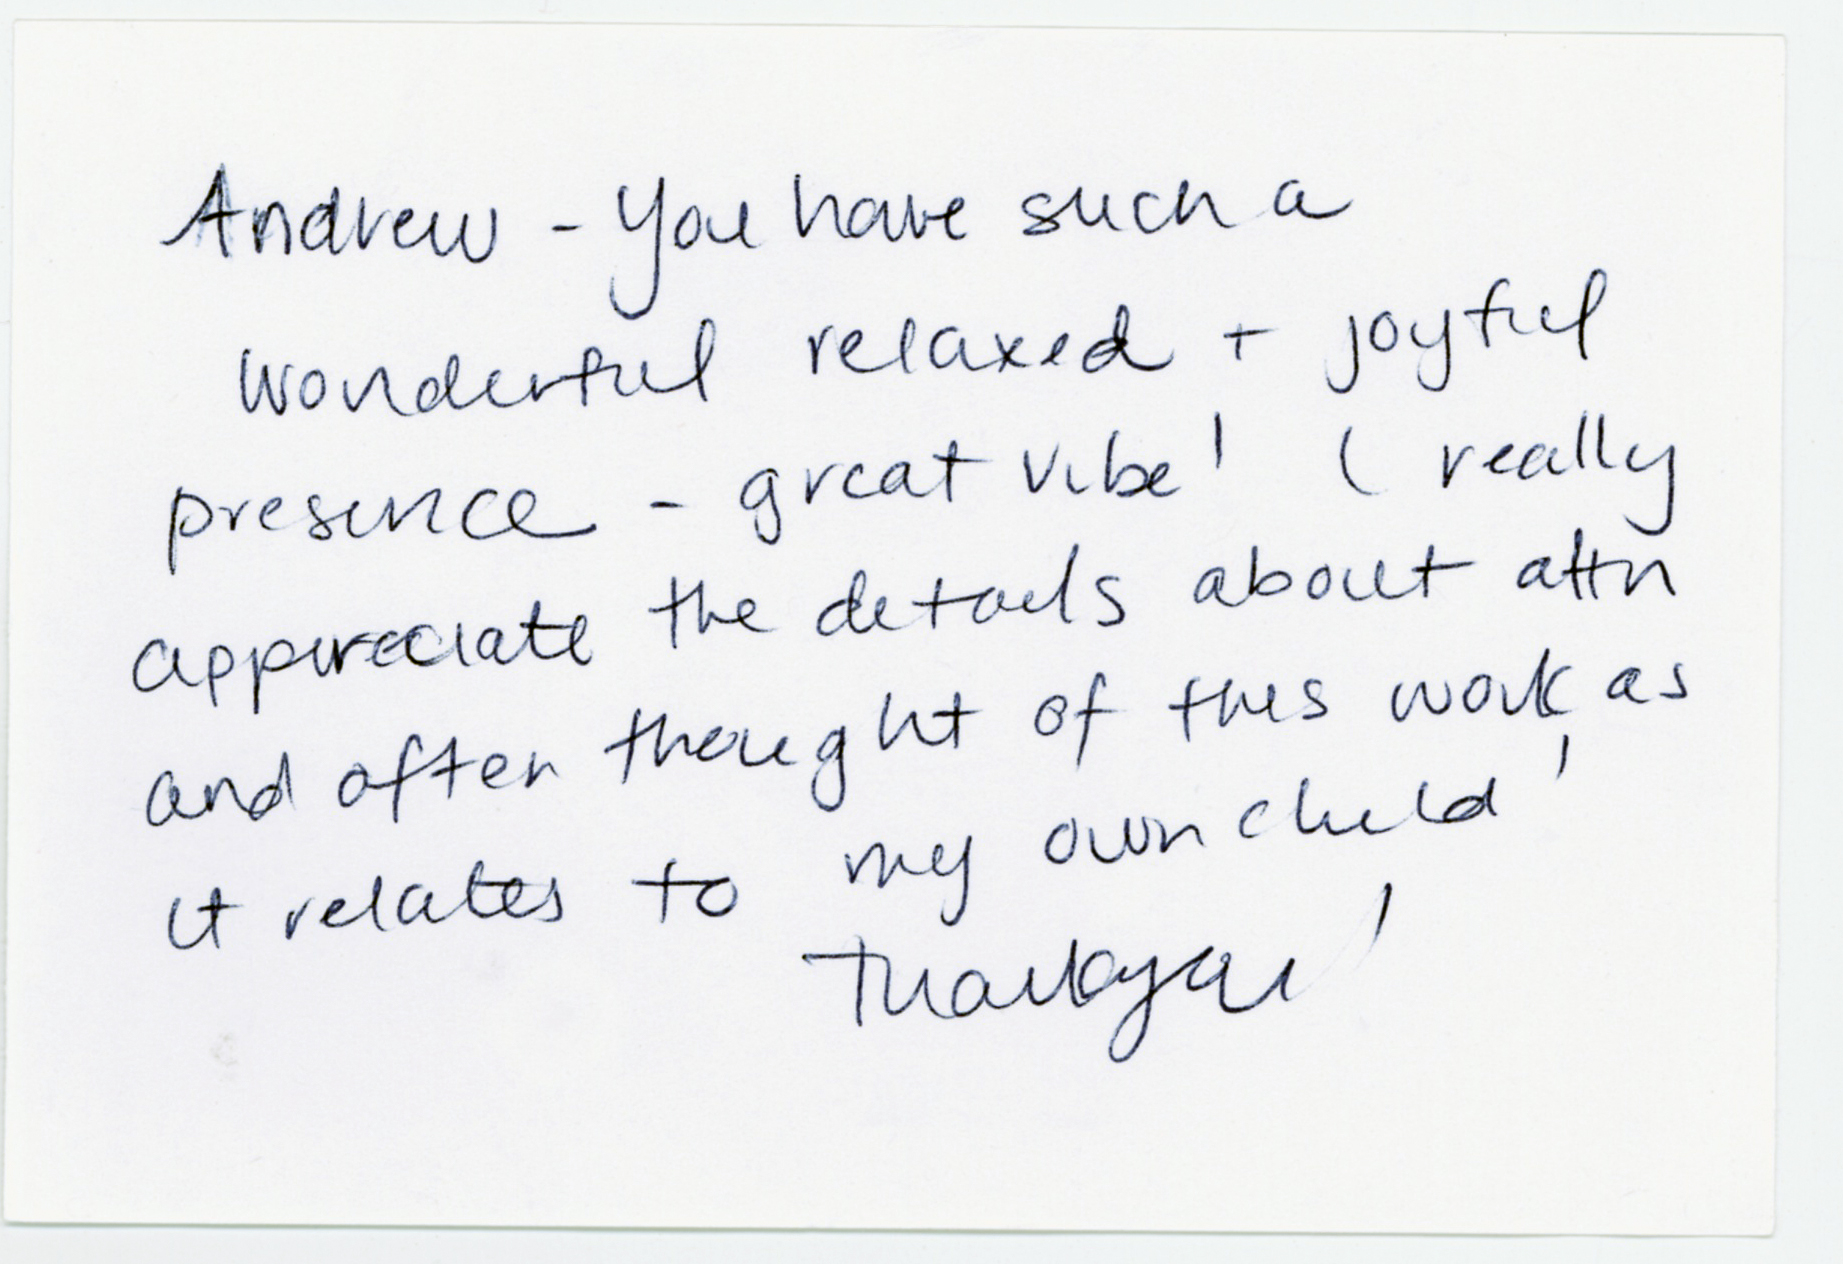 Andrew - You have such a
wonderful relaxed + joyful
presence - great vibe! I really
appreciate the details about attn
and often thought of this work as
it relates to my own child!
Thank you!